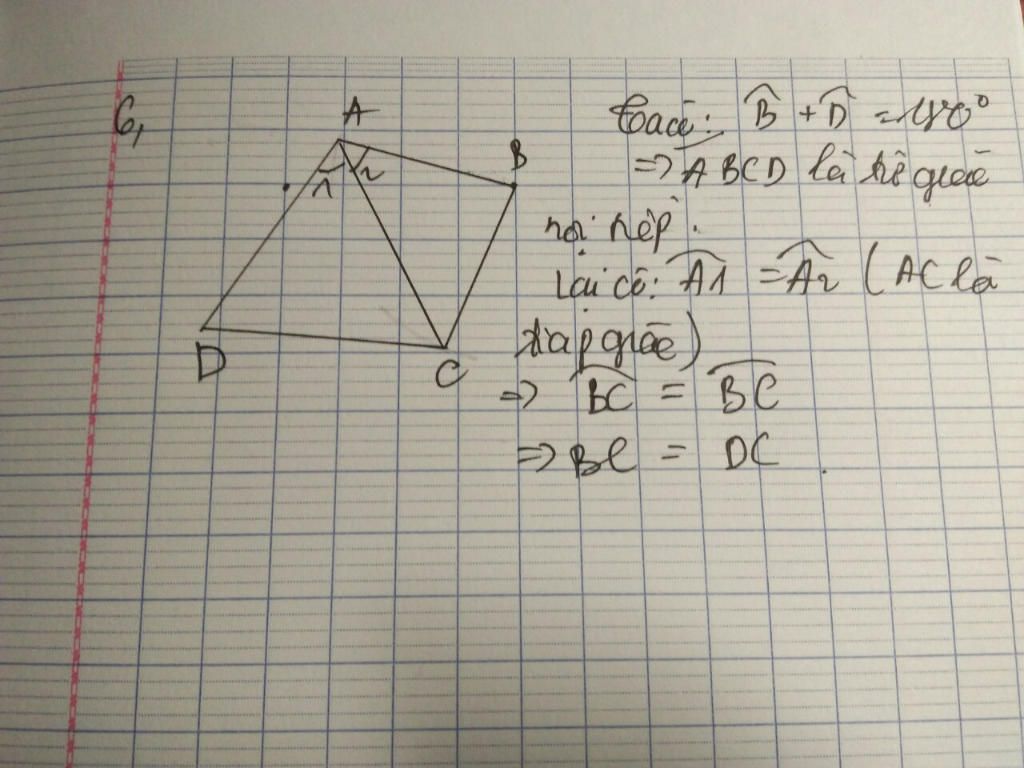 6,
A
B
1 2
D
C
Ta có: B̂ + D̂ = 180°
=> ABCD là tứ giác
nội tiếp.
Lại có: Â1 = Â2 (AC là
phân giác)
=> BC = BC
=> BC = DC